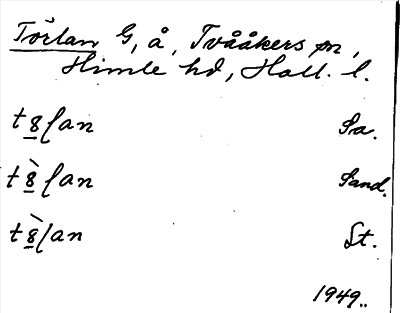 Törlan G, å, Tvååkers sn,
Himle hd, Hall. l.
t8ſan Sa.
t8̀ſan Sand.
t8̀ſan St.
1949..